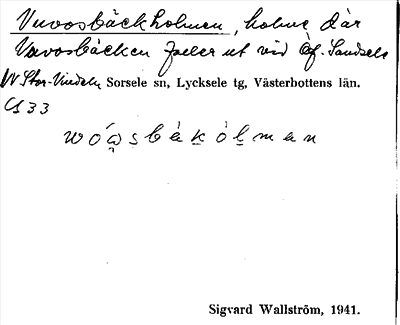 Vuvosbäckholmen, holme där
Vuvosbäcken faller ut vid Öf. Sandsele
W Stor-Vindeln Sorsele sn, Lycksele tg, Västerbottens län.
33
Sigvard Wallström, 1941.